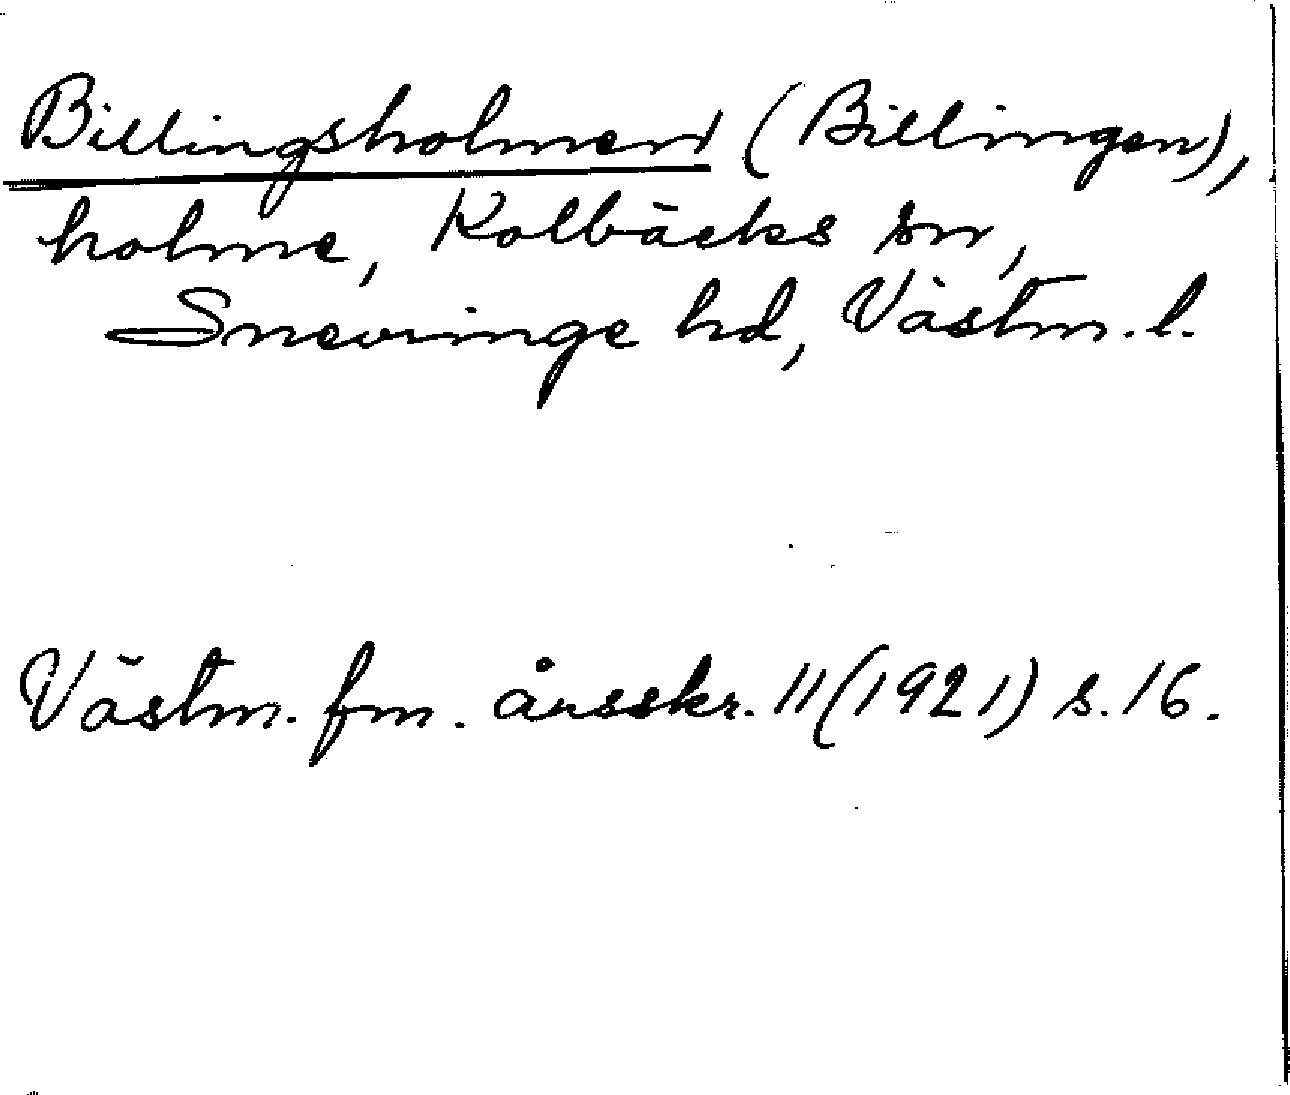 Billingsholmen (Billingen),
holme, Kolbäcks sn,
Snevringe hd, Västm. l.
Västm. fm. årsskr. 11 (1921) s. 16.